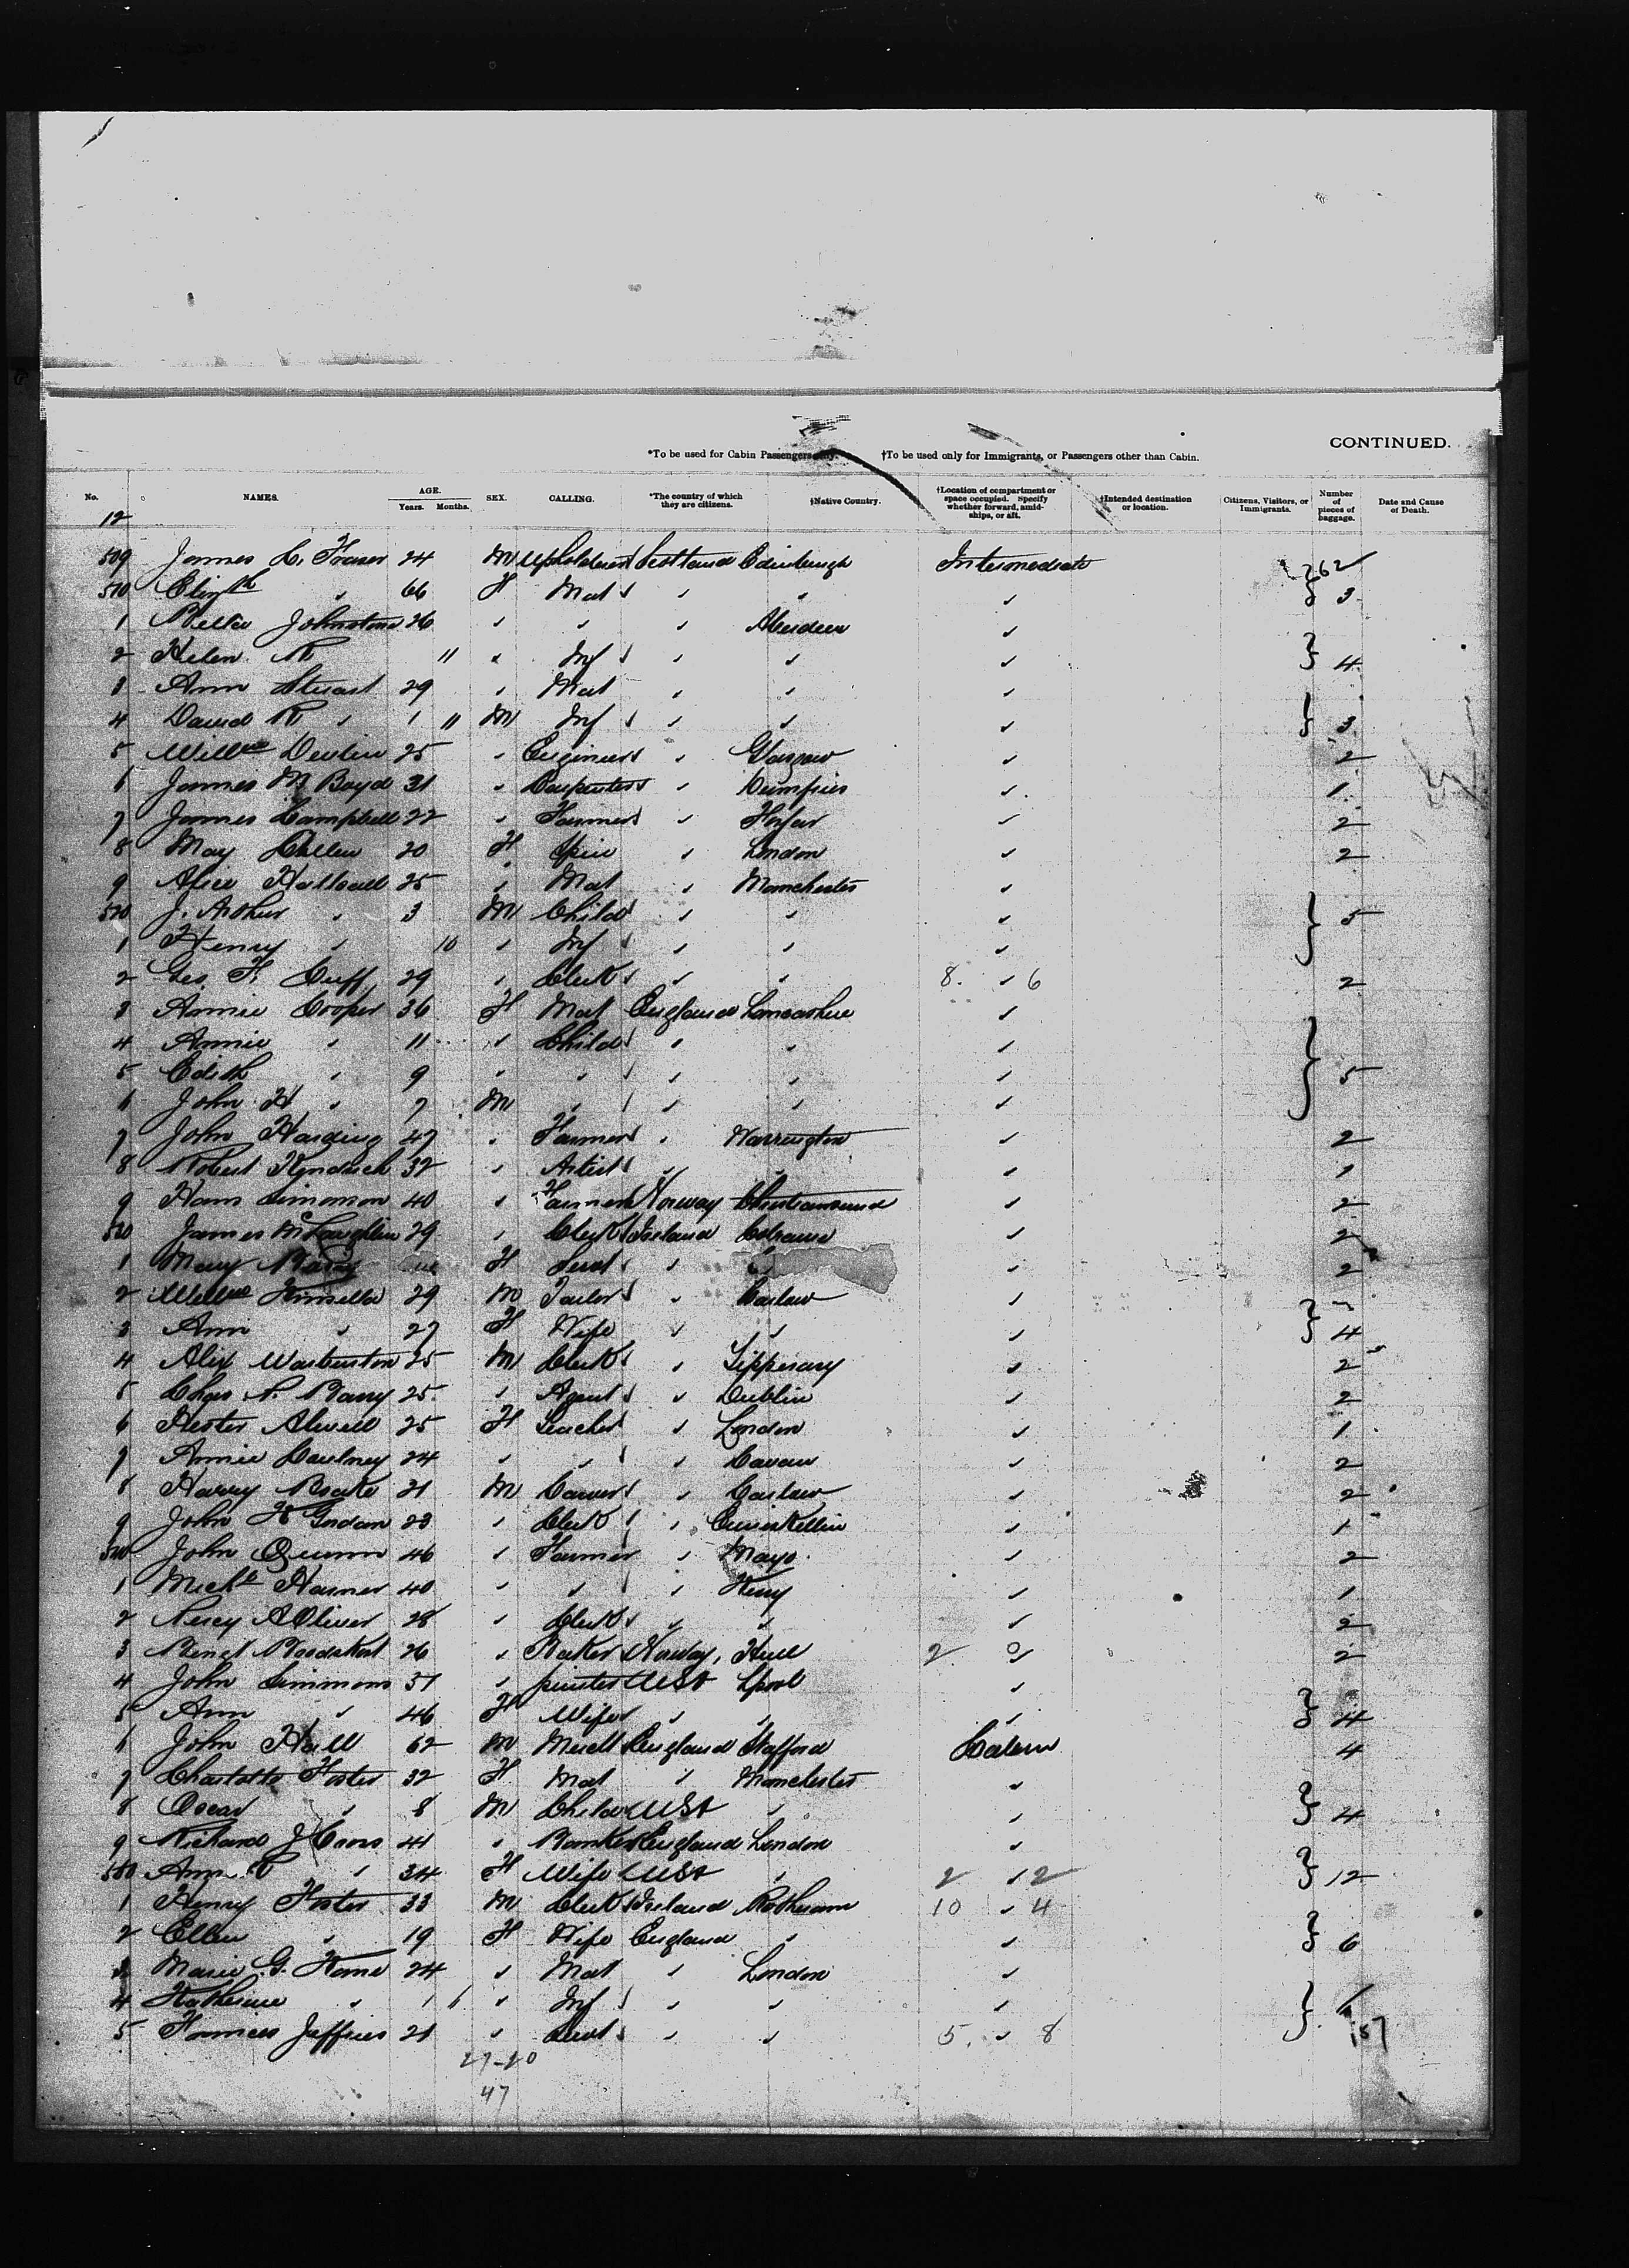 CONTINUED.
*To be used for Cabin Passengers only. †To be used only for Immigrants, or Passengers other than Cabin.
No. NAMES. AGE. Years. Months. SEX. CALLING. *The country of which they are citizens. †Native Country. †Location of compartment or space occupied. Specify whether forward, amidships, or aft. †Intended destination or location. Citizens, Visitors, or Immigrants. Number of pieces of baggage. Date and Cause of Death.
12
509 James C. Fraser 24 M Scotland Edinburgh Intermediate 262
510 Elizth " 66 F Mat " " " 3
1 Bella Johnstone 26 " " " Aberdeen "
2 Helen R 11 " Inf " " " 4
3 Ann Stuart 29 " Mat " " "
4 David R " 1 11 M Inf " " " 3
5 Willm Devlin 25 " Engineer " Glasgow " 2
6 James M Boyd 31 " Carpenter " Dumfries " 1
7 James Campbell 22 " Farmer " Forfar " 2
8 May Cullen 20 F Spin " London " 2
9 Alice Hallsall 25 " Mat " Manchester "
520 J. Arthur " 3 M Child " " " 5
1 Henry " 10 " Inf " " "
2 Geo. F. Cuff 29 " Clerk " " 8. " 6 2
3 Annie Cooper 36 F Mat England Lancashire "
4 Annie " 11 " Child " " "
5 Edith " 9 " " " " " 5
6 John H " 7 M " " " "
7 John Harding 47 " Farmer " Warrington " 2
8 Robert Kendrick 32 " Artist " " " 1
9 Hans Simonson 40 " Farmer Norway Christiansund " 2
530 James McLaughlin 29 " Clerk Ireland Colraine " 2
1 Mary F Servt " " 2
2 Willm Kinsella 29 M Tailor " Carlow "
3 Ann " 27 F Wife " " " 4
4 Alex Warburton 25 M Clerk " Tipperary " 2
5 Chas P. Barry 25 " Agent " Dublin " 2
6 Hester Atwell 25 F Teacher " London " 1
7 Annie 24 " " " Cavan " 2
8 Harry 21 M " Carlow " 2
9 John H Gordon 23 " Clerk " Enniskillin " 1
540 John Quinn 46 " Farmer " Mayo " 2
1 Michl 40 " " " Kerry " 1
2 Percy A Oliver 28 " Clerk " " " 2
3 26 " Baker Norway, Hull 2 2
4 John Simmons 37 " printer USA Lpool "
5 Ann " 46 F Wife " " " 4
6 John Hall 62 M Mercht England Stafford Saloon 4
7 Charlotte Foster 32 F Mat " Manchester "
8 Oscar " 8 M Child USA " " 4
9 Richard J Cross 41 " Banker England London "
550 Ann " 34 F Wife USA " 2 " 2 12
1 Henry Foster 33 M Clerk Ireland 10 " 4
2 Ellen " 19 F Wife England " " 6
3 Marie G. 24 " Mat " London "
4 Katherine " 1 " Inf " " "
5 Frances Jeffries 21 " Servt " " 5. " 8 157
27-20
47